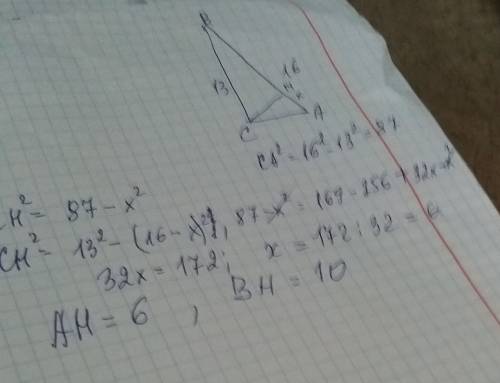 B
13
16
H
x
C
A
CA² = 16² - 13² = 87
CH² = 87 - x²
CH² = 13² - (16 - x)²; 87 - x² = 169 - 256 + 32x - x²
32x = 172; x = 172 : 32 = 6
AH = 6 , BH = 10